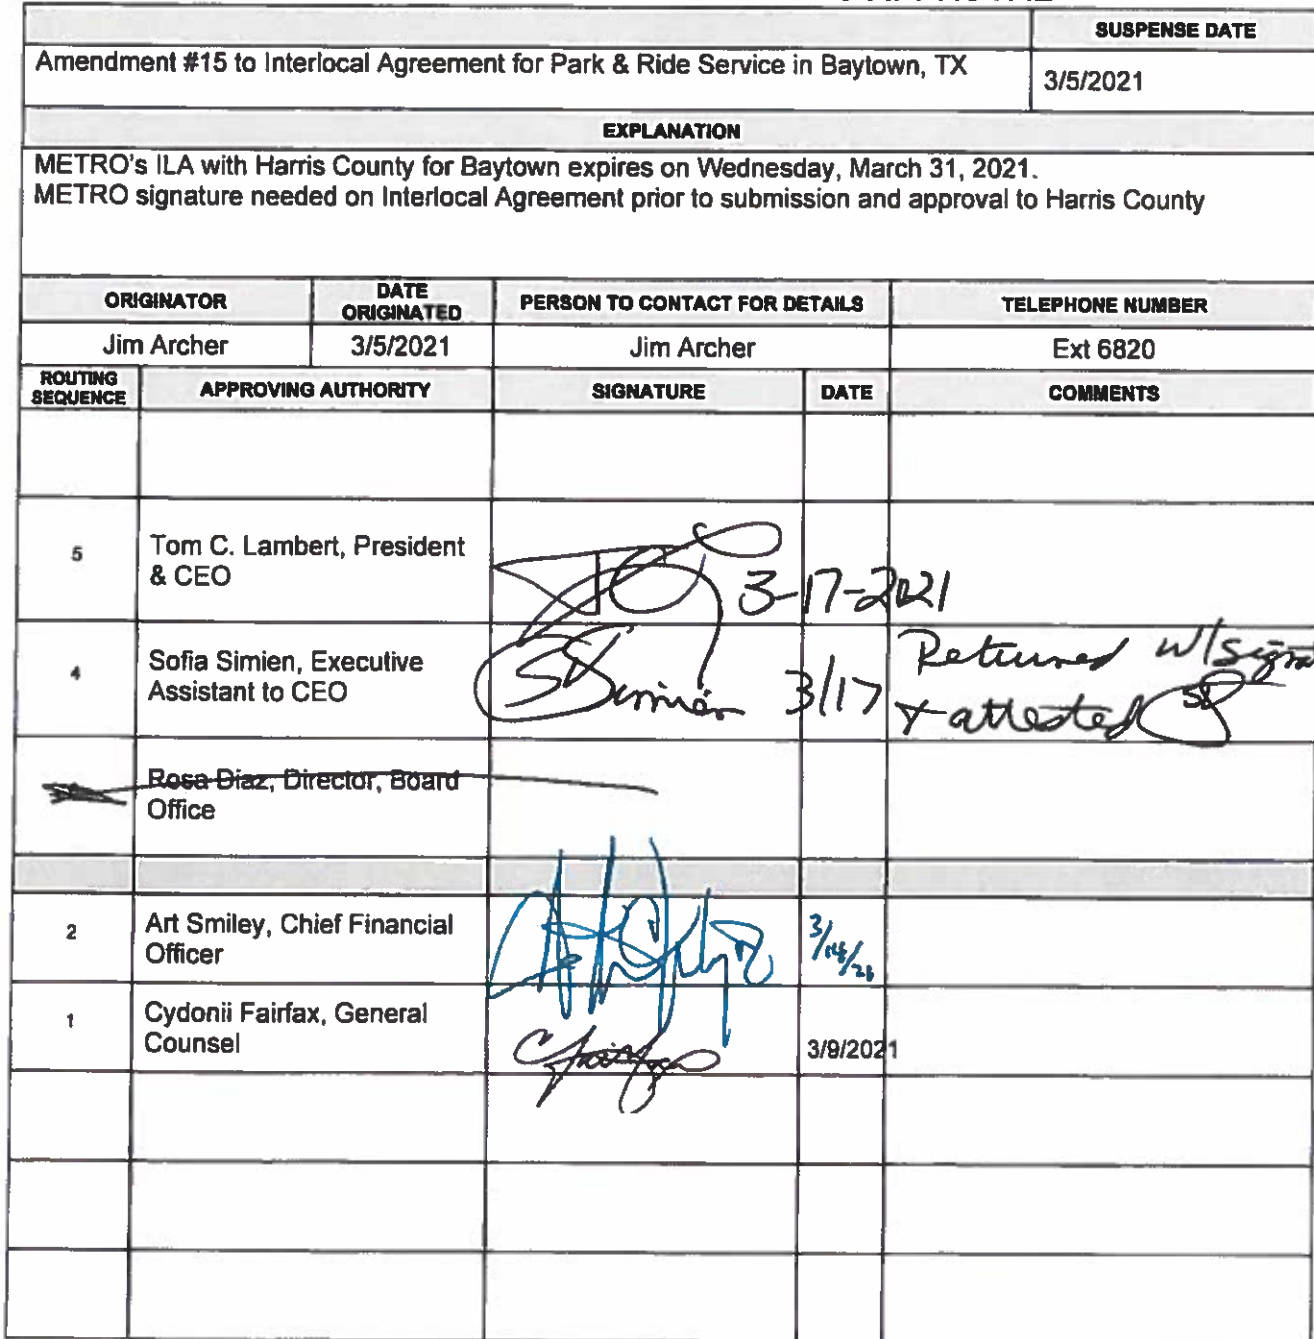 SUSPENSE DATE
Amendment #15 to Interlocal Agreement for Park & Ride Service in Baytown, TX
3/5/2021
EXPLANATION
METRO's ILA with Harris County for Baytown expires on Wednesday, March 31, 2021.
METRO signature needed on Interlocal Agreement prior to submission and approval to Harris County
ORIGINATOR
DATE
ORIGINATED
PERSON TO CONTACT FOR DETAILS
TELEPHONE NUMBER
Jim Archer
3/5/2021
Jim Archer
Ext 6820
ROUTING
SEQUENCE
APPROVING AUTHORITY
SIGNATURE
DATE
COMMENTS
5
Tom C. Lambert, President
& CEO
3-17-2021
4
Sofia Simien, Executive
Assistant to CEO
SSimien
3/17
Returned w/sign
+ attested
Rosa Diaz, Director, Board
Office
2
Art Smiley, Chief Financial
Officer
1
Cydonii Fairfax, General
Counsel
CFairfax
3/9/2021